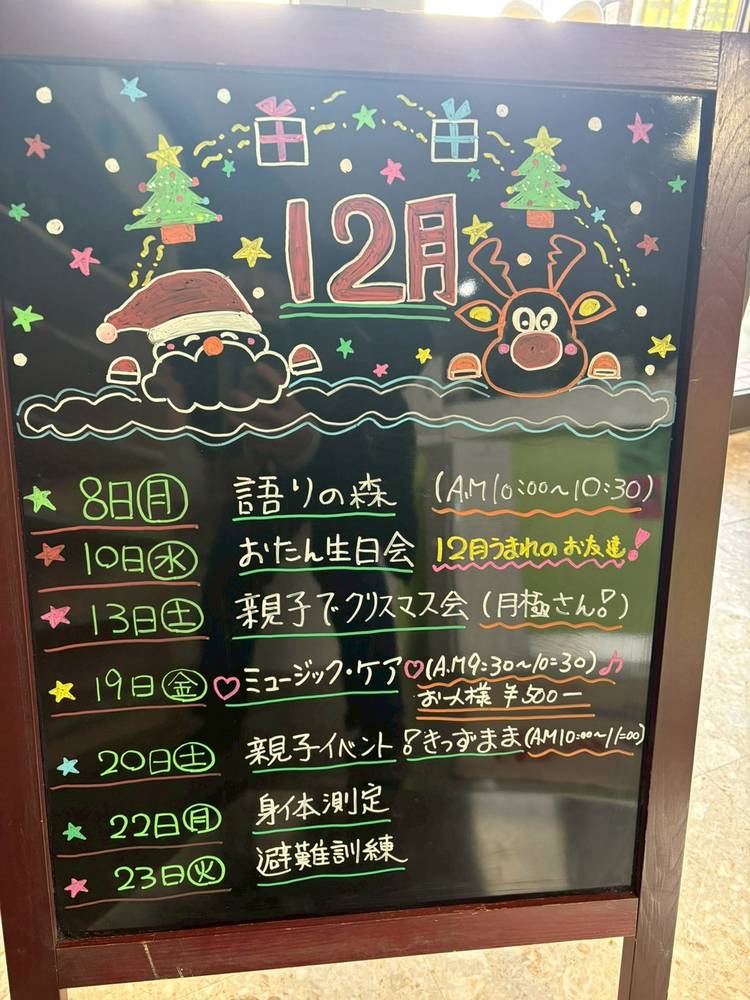 12月
8日(月) 語りの森 (A.M10:00〜10:30)
10日(水) おたん生日会 12月うまれのお友達!
13日(土) 親子でクリスマス会 (月極さん!)
19日(金) ♡ミュージック・ケア♡(A.M9:30〜10:30)♪
お一人様 ¥500ー
20日(土) 親子イベント!きっずまま(AM10:00〜11:00)
22日(月) 身体測定
23日(火) 避難訓練